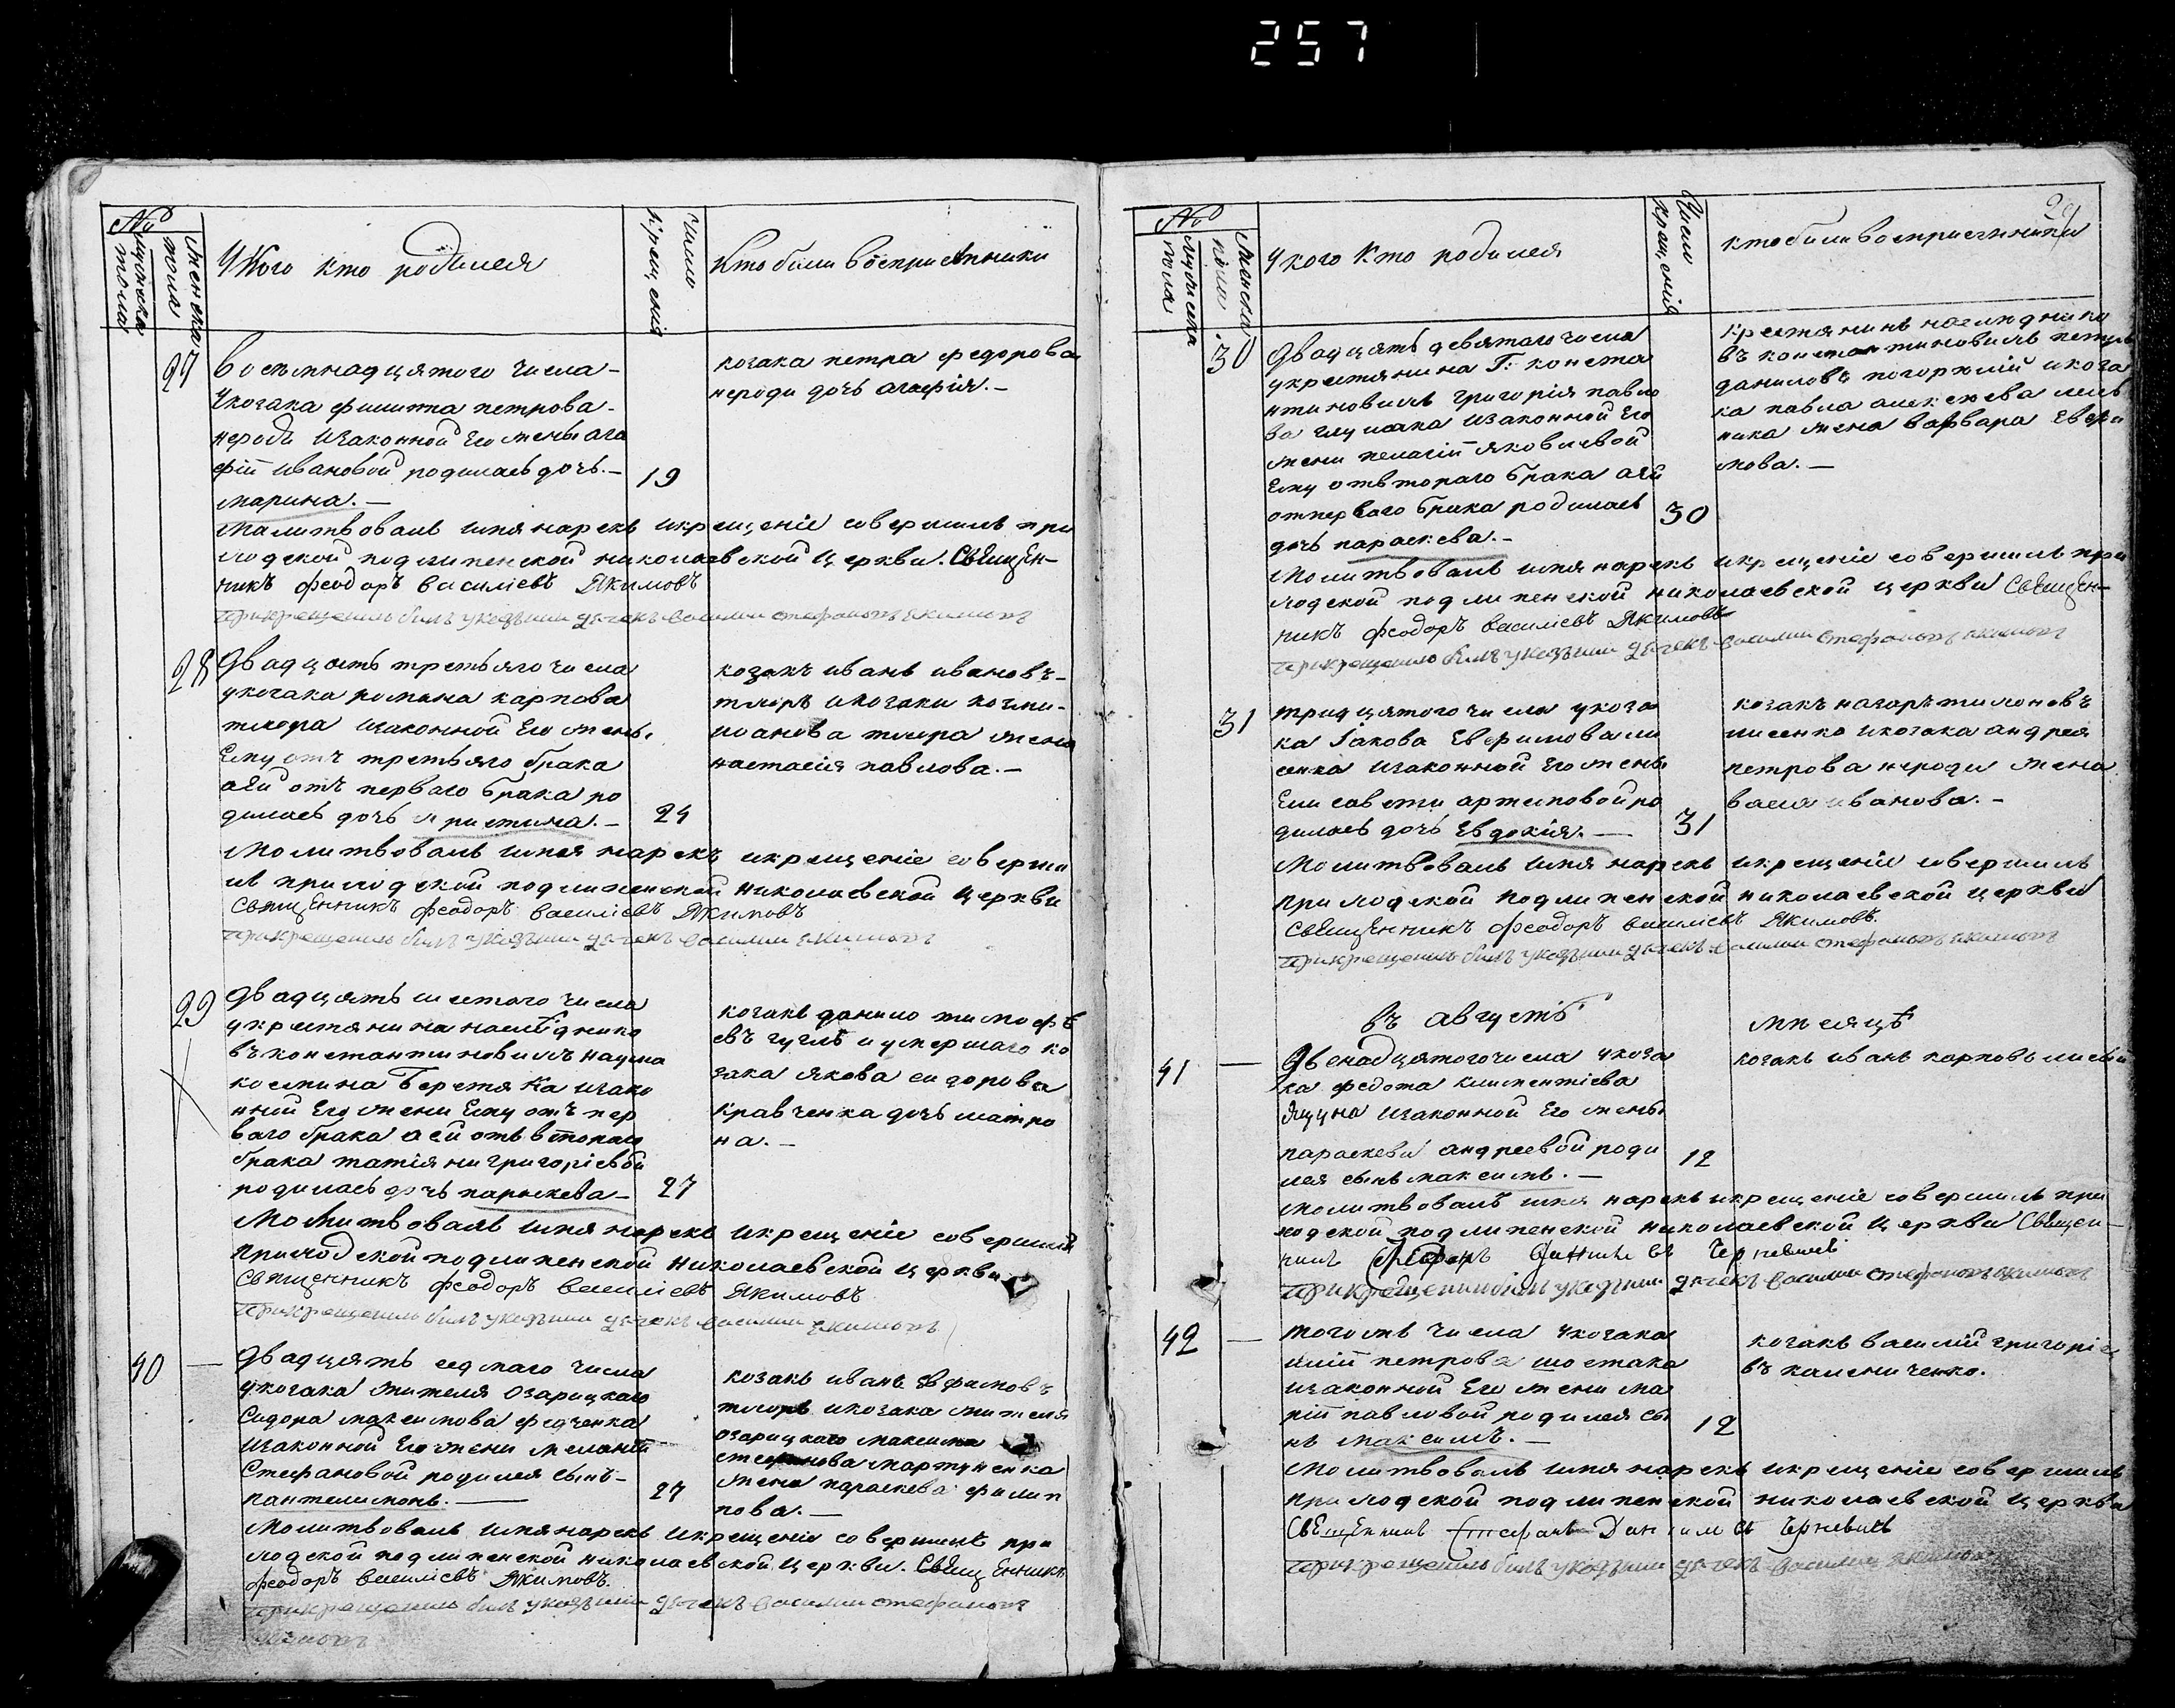 257
№
мужеска пола
женска пола
У кого кто родился
число крещенія
Кто были восприемники
27
восемнадцятого числа
у козака филиппа петрова
нероды изаконной его жены ага
фіи ивановой родилась дочь
марина.
19
козака петра федорова
нероди дочь агафія.
Молитвовалъ имя нарекъ икрещеніе совершилъ при
ходской подлипенской николаевской церкви. Священ-
никъ феодоръ василіевъ Якимовъ
при крещеніи былъ указный дячекъ василий стефановъ якимовъ
28
двадцать третьяго числа
у козака романа карпова
изаконной его жены
ему отъ третьяго брака
аей отъ перваго брака ро
дилась дочь христина.
24
козакъ иванъ ивановъ
икозака козми
иоанова жена
настасія павлова.
Молитвовалъ имя нарекъ икрещеніе соверши
лъ приходской подлипенской николаевской церкви
Священникъ феодоръ василіевъ Якимовъ
при крещеніи былъ указный дячекъ василий якимовъ
29
двадцять шестого числа
укрестянина наслѣднико
въ константиновичъ наума
космина Беретяка изако
нной его жени ему отъ пер
ваго брака аей отъ втораго
брака татіяни григоріевой
родилась дочь параскева
27
козакъ данило тимофѣ
евъ и умершаго ко
зака якова сидорова
кравченка дочь матро
на.
Молитвовалъ имя нарекъ икрещеніе совершилъ
приходской подлипенской николаевской церкви
Священникъ феодоръ василіевъ Якимовъ
при крещеніи былъ указный дячекъ василий якимовъ
40
двадцять седмаго числа
укозака жителя озарицкаго
Сидора максимова федченка
изаконной его жени меланіи
Стефановой родился сынъ
пантелимонъ.
27
козакъ иванъ ефимовъ
икозака жителя
озарицкаго максима
стефанова мартыненка
жена параскева филип
пова.
Молитвовалъ имя нарекъ икрещеніе совершилъ при
ходской подлипенской николаевской церкви. Священникъ
феодоръ василіевъ Якимовъ.
при крещеніи былъ указный дячекъ василий стефановъ
якимовъ
№
мужеска пола
женска пола
У кого кто родился
Число крещенія
кто били восприемники
30
двадцять девятаго числа
укрестянина Г: конста
нтиновичъ григорія павло
ва изаконной его
жени пелагіи яковлевой
ему отъ втораго брака аей
отъ перваго брака родилась
дочь параскева.
30
крестянинъ наслѣднико
въ константиновичъ петръ
даниловъ погорѣлий икоза
ка павла алексеева
жена варвара ефи
мова.
Молитвовалъ имя нарекъ икрещеніе совершилъ при
ходской подлипенской николаевской церкви Священ-
никъ феодоръ василіевъ Якимовъ
при крещеніи былъ указный дячекъ василий стефановъ якимовъ
31
тридцятого числа укоза
ка Іакова Ефимова ли
сенка изаконной его жены
Елисавети артемовой ро
дилась дочь Евдокія.
31
козакъ назаръ тихоновъ
лисенко икозака андрея
петрова нероди жена
васса иванова.
Молитвовалъ имя нарекъ икрещеніе совершилъ
приходской подлипенской николаевской церкви
Священникъ феодоръ василіевъ Якимовъ.
при крещеніи былъ указный дячекъ василий стефановъ якимовъ
въ августѣ
мѣсяцѣ
41
Двенадцятого числа укоза
ка федота климентіева
Яцуна изаконной его жены
параскеви андреевой роди
лся сынъ максимъ.
12
козакъ иванъ карповъ
Молитвовалъ имя нарекъ икрещеніе совершилъ при
ходской подлипенской николаевской церкви Священ-
никъ Стефанъ
при крещеніи былъ указный дячекъ василий стефановъ якимовъ
42
тогожъ числа укозака
петрова шостака
изаконной его жени ма
ріи павловой родился сы
нъ максимъ.
12
козакъ василій григоріе
въ каленченко.
Молитвовалъ имя нарекъ икрещеніе совершилъ
приходской подлипенской николаевской церкви
Священникъ Стефанъ
при крещеніи былъ указный дячекъ василий якимовъ